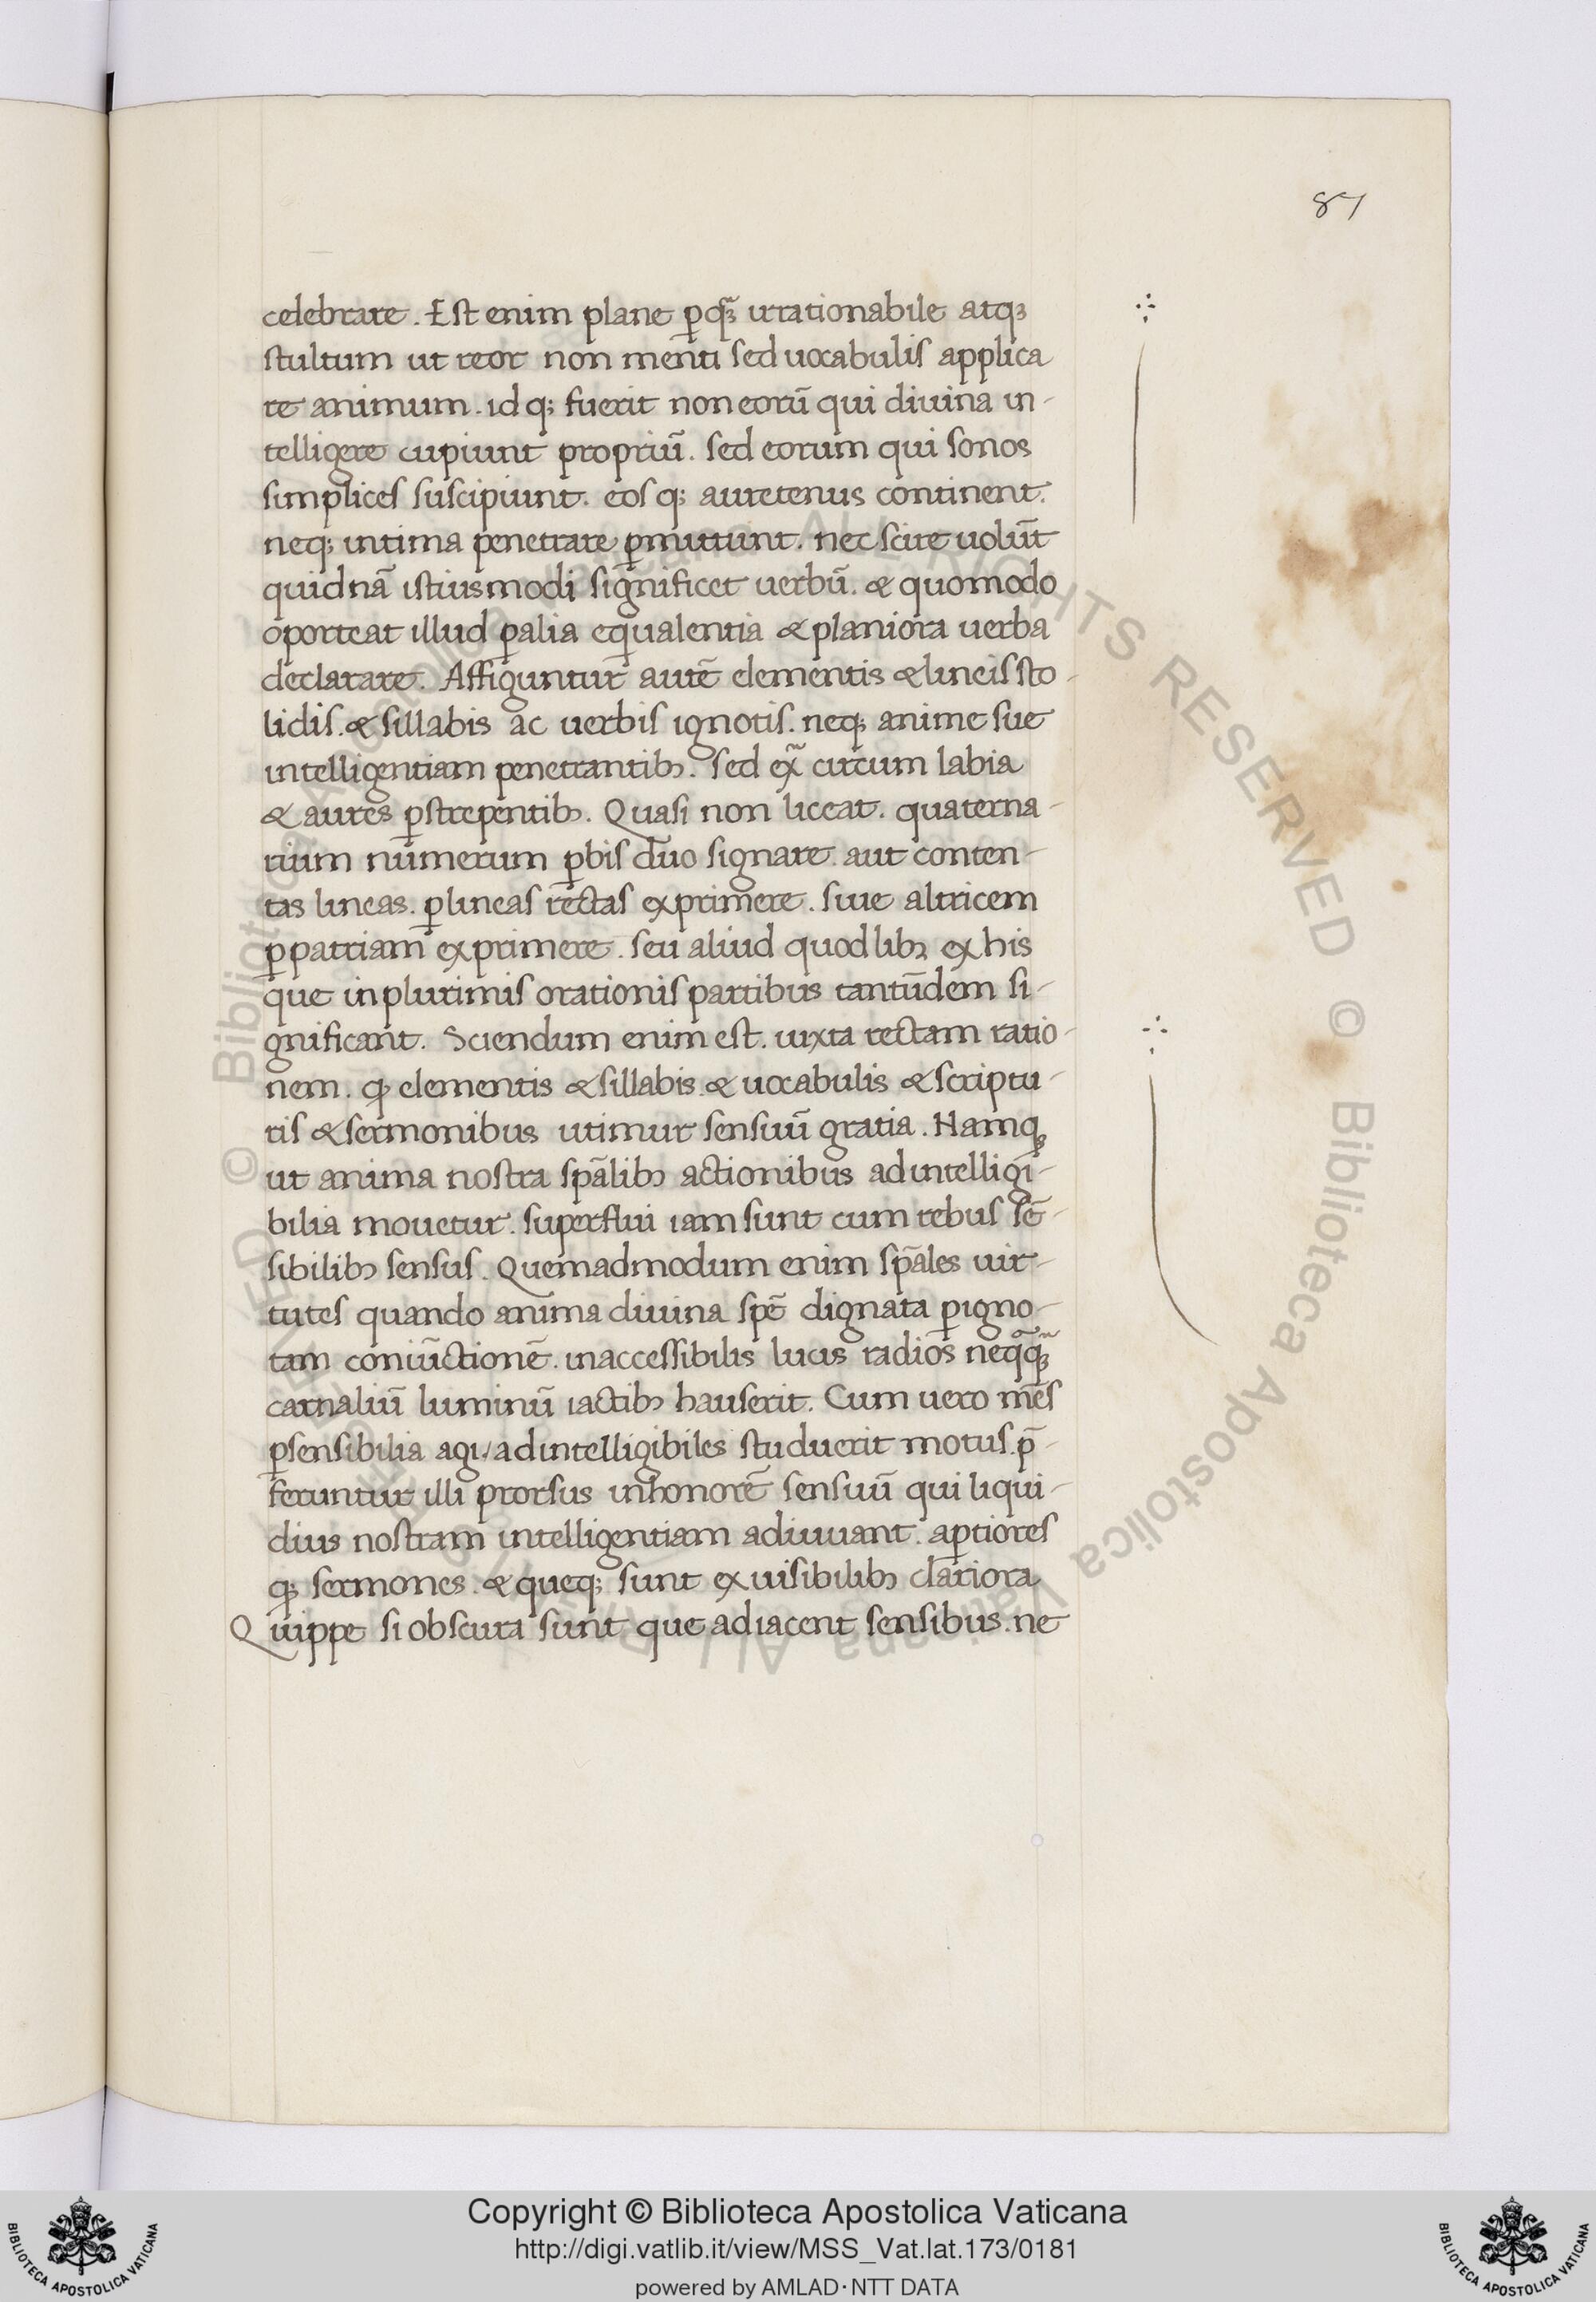 87
celebrare. Est enim plane ꝑqꝫ̃ irrationabile atqꝫ
stultum ut reor non menti sed uocabulis applica
re animum. id q; fuerit non eorū qui diuina in-
telligere cupiunt propriū. sed eorum qui sonos
simplices suscipiunt. eos q; auretenus continent.
neq; intima penetrare ꝑmittunt. nec scire uolūt
quidnā istiusmodi significet uerbū. & quomodo
oporteat illud ꝑ alia equalentia & planiora uerba
declarare. Affiguntur autē elementis & lineis sto-
lidis. & sillabis ac uerbis ignotis. neq; anime sue
intelligentiam penetrantibꝰ. sed ex̃ circum labia
& aures ꝑstrepentibꝰ. Quasi non liceat. quaterna-
rium numerum ꝑ bis duo signare. aut conten-
tas lineas. ꝑ lineas rectas exprimere. siue altricem
ꝑ patriam exprimere. seu aliud quodlibꝫ ex his
que in plurimis orationis partibus tantūdem si-
gnificant. Sciendum enim est. iuxta rectam ratio-
nem. qꝫ elementis & sillabis. & uocabulis & scriptu-
ris & sermonibus utimur sensuū gratia. Namqꝫ
ut anima nostra sp̄alibꝰ actionibus ad intelligi-
bilia mouetur. superflui iam sunt cum rebus sē-
sibilibꝰ sensus. Quemadmodum enim sp̄ales uir-
tutes quando anima diuina spē dignata ꝑ igno-
tam coniūctionē. inaccessibilis lucis radios neqq̃ꝫ
carnaliū luminū iactibꝰ hauserit. Cum uero mēs
ꝑ sensibilia agi / ad intelligibiles studuerit motus. p̄-
feruntur illi prorsus in honorē sensuū qui liqui-
dius nostram intelligentiam adiuuant. aptiores
qꝫ sermones. & queq; sunt ex uisibilibꝰ clariora
Quippe si obscura sunt que adiacent sensibus. ne
© Biblioteca Apostolica Vaticana ALL RIGHTS RESERVED © Biblioteca Apostolica Vaticana ALL RIGHTS RESERVED
Copyright © Biblioteca Apostolica Vaticana
http://digi.vatlib.it/view/MSS_Vat.lat.173/0181
powered by AMLAD·NTT DATA
BIBLIOTECA APOSTOLICA VATICANA
BIBLIOTECA APOSTOLICA VATICANA